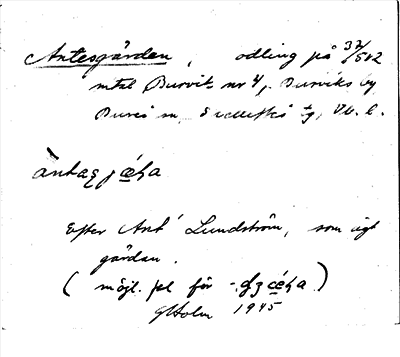 Antesgården, odling på 32/502
mtal Burvik nr 4, Burviks by
Bureå sn, Skellefteå tg, Vb. l.
àntaʂ jæɳa
Efter Ant' Lundström, som ägt
gården.
(möjl. pl för -
GHolm 1945